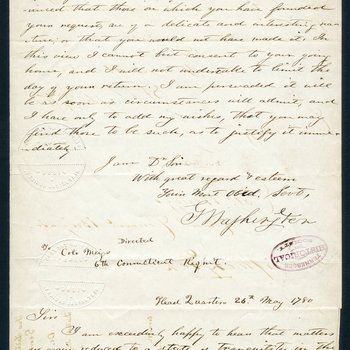 vinced that those on which you have founded
your request, are of a delicate and interesting na-
ture, or that you would not have made it. In
this view I cannot but consent to your going
home, and I will not undertake to limit the
day of your return. I am persuaded it will
be as soon as circumstances will admit, and
I have only to add my wishes, that you may
find those to be such, as to justify it imme-
diately.
I am Dr Sir
With great regard & esteem
Your Most Obed. Servt,
G Washington
Directed
To Colo Meigs
6th Connecticut Regmt.
Head Quarters 26th May 1780
Sir
I am exceedingly happy to hear that matters
reduced to a state of tranquility in the